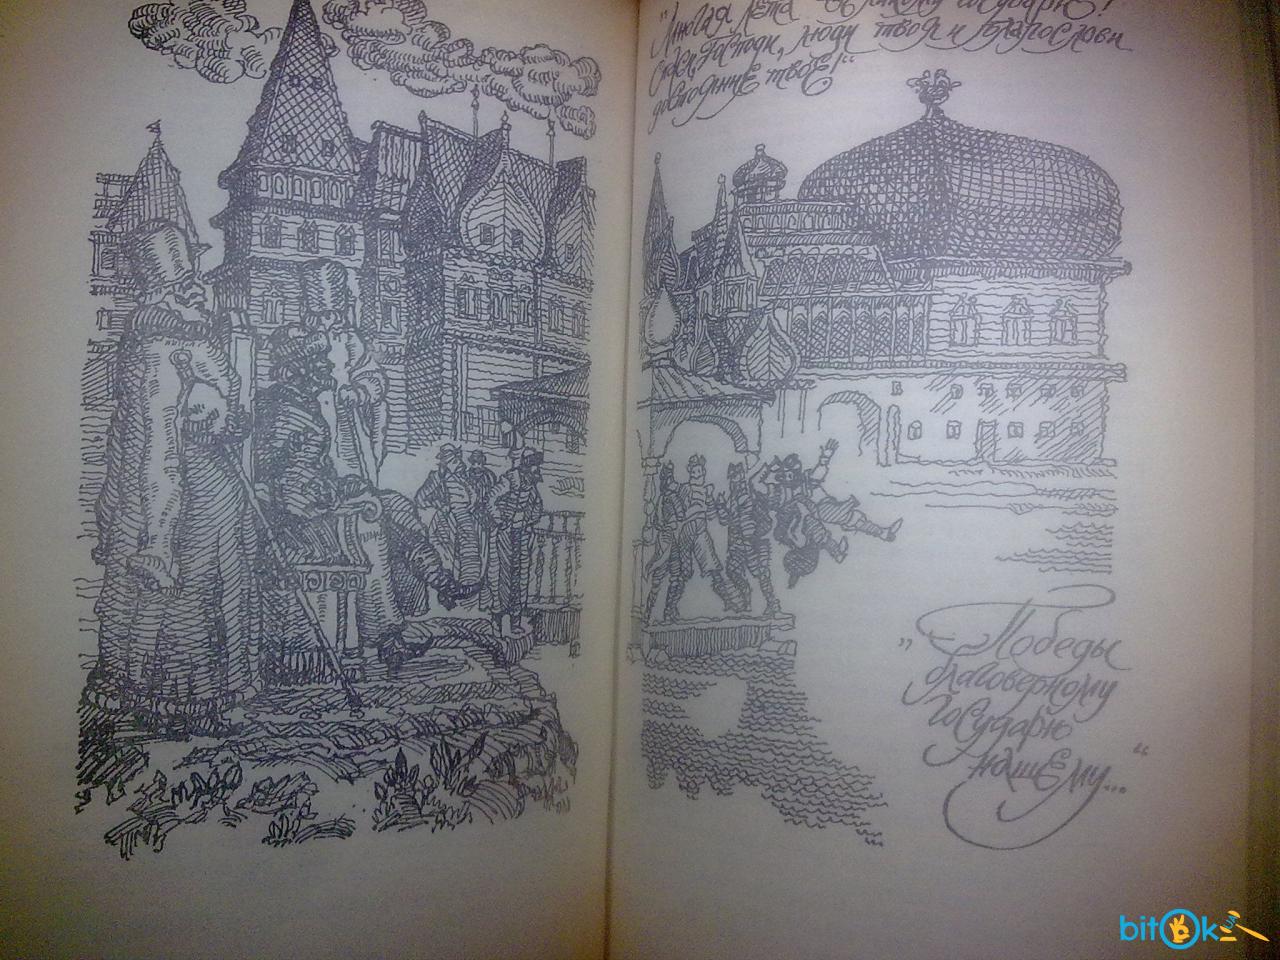 "Многая лета великому государю!
Спаси, Господи, люди твоя и благослови
достояние твоё!"
"Победы
благоверному
государю
нашему..."
bitOk.ua